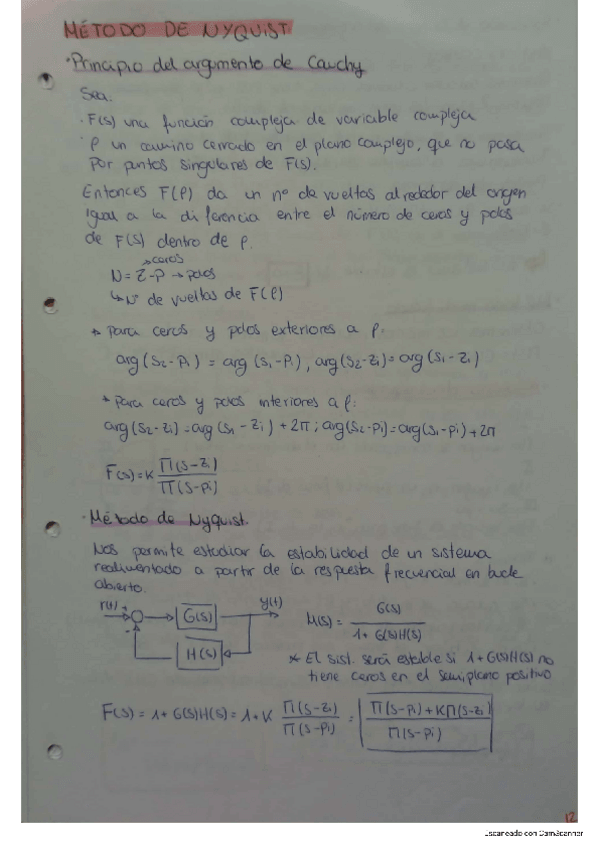 MÉTODO DE NYQUIST
· Principio del argumento de Cauchy
Sea:
· F(s) una función compleja de variable compleja
· ρ un camino cerrado en el plano complejo, que no pasa
por puntos singulares de F(s).
Entonces F(ρ) da un nº de vueltas alrededor del origen
igual a la diferencia entre el número de ceros y polos
de F(s) dentro de ρ.
→ ceros
N = Z - P → polos
↳ Nº de vueltas de F(ρ)
* Para ceros y polos exteriores a ρ:
arg(S2-Pi) = arg(S1-Pi), arg(S2-Zi) = arg(S1-Zi)
* Para ceros y polos interiores a ρ:
arg(S2-Zi) = arg(S1-Zi) + 2π; arg(S2-Pi) = arg(S1-Pi) + 2π
F(s) = K Π(S-Zi) / Π(S-Pi)
· Método de Nyquist.
Nos permite estudiar la estabilidad de un sistema
realimentado a partir de la respuesta frecuencial en bucle
abierto.
r(t) + - G(s) y(t)
H(s)
M(s) = G(s) / 1 + G(s)H(s)
* El sist. será estable si 1 + G(s)H(s) no
tiene ceros en el semiplano positivo
F(s) = 1 + G(s)H(s) = 1 + K Π(S-Zi) / Π(S-Pi) = Π(S-Pi) + KΠ(S-Zi) / Π(S-Pi)
12
Escaneado con CamScanner